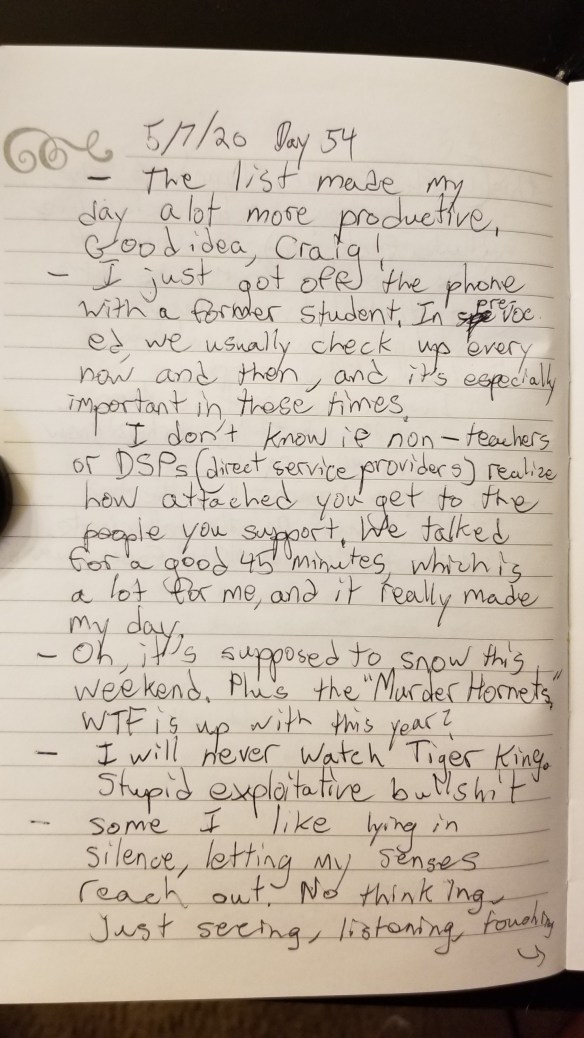 5/7/20 Day 54
- The list made my
day a lot more productive.
Good idea, Craig!
- I just got off the phone
with a former student. In pre voc
ed, we usually check up every
now and then, and it's especially
important in these times.
I don't know if non-teachers
or DSPs (direct service providers) realize
how attached you get to the
people you support. We talked
for a good 45 minutes, which is
a lot for me, and it really made
my day.
- Oh, it's supposed to snow this
weekend. Plus the "Murder Hornets."
WTF is up with this year?
- I will never watch Tiger King.
Stupid exploitative bullshit
- some I like lying in
silence, letting my senses
reach out. No thinking,
just seeing, listening, touching